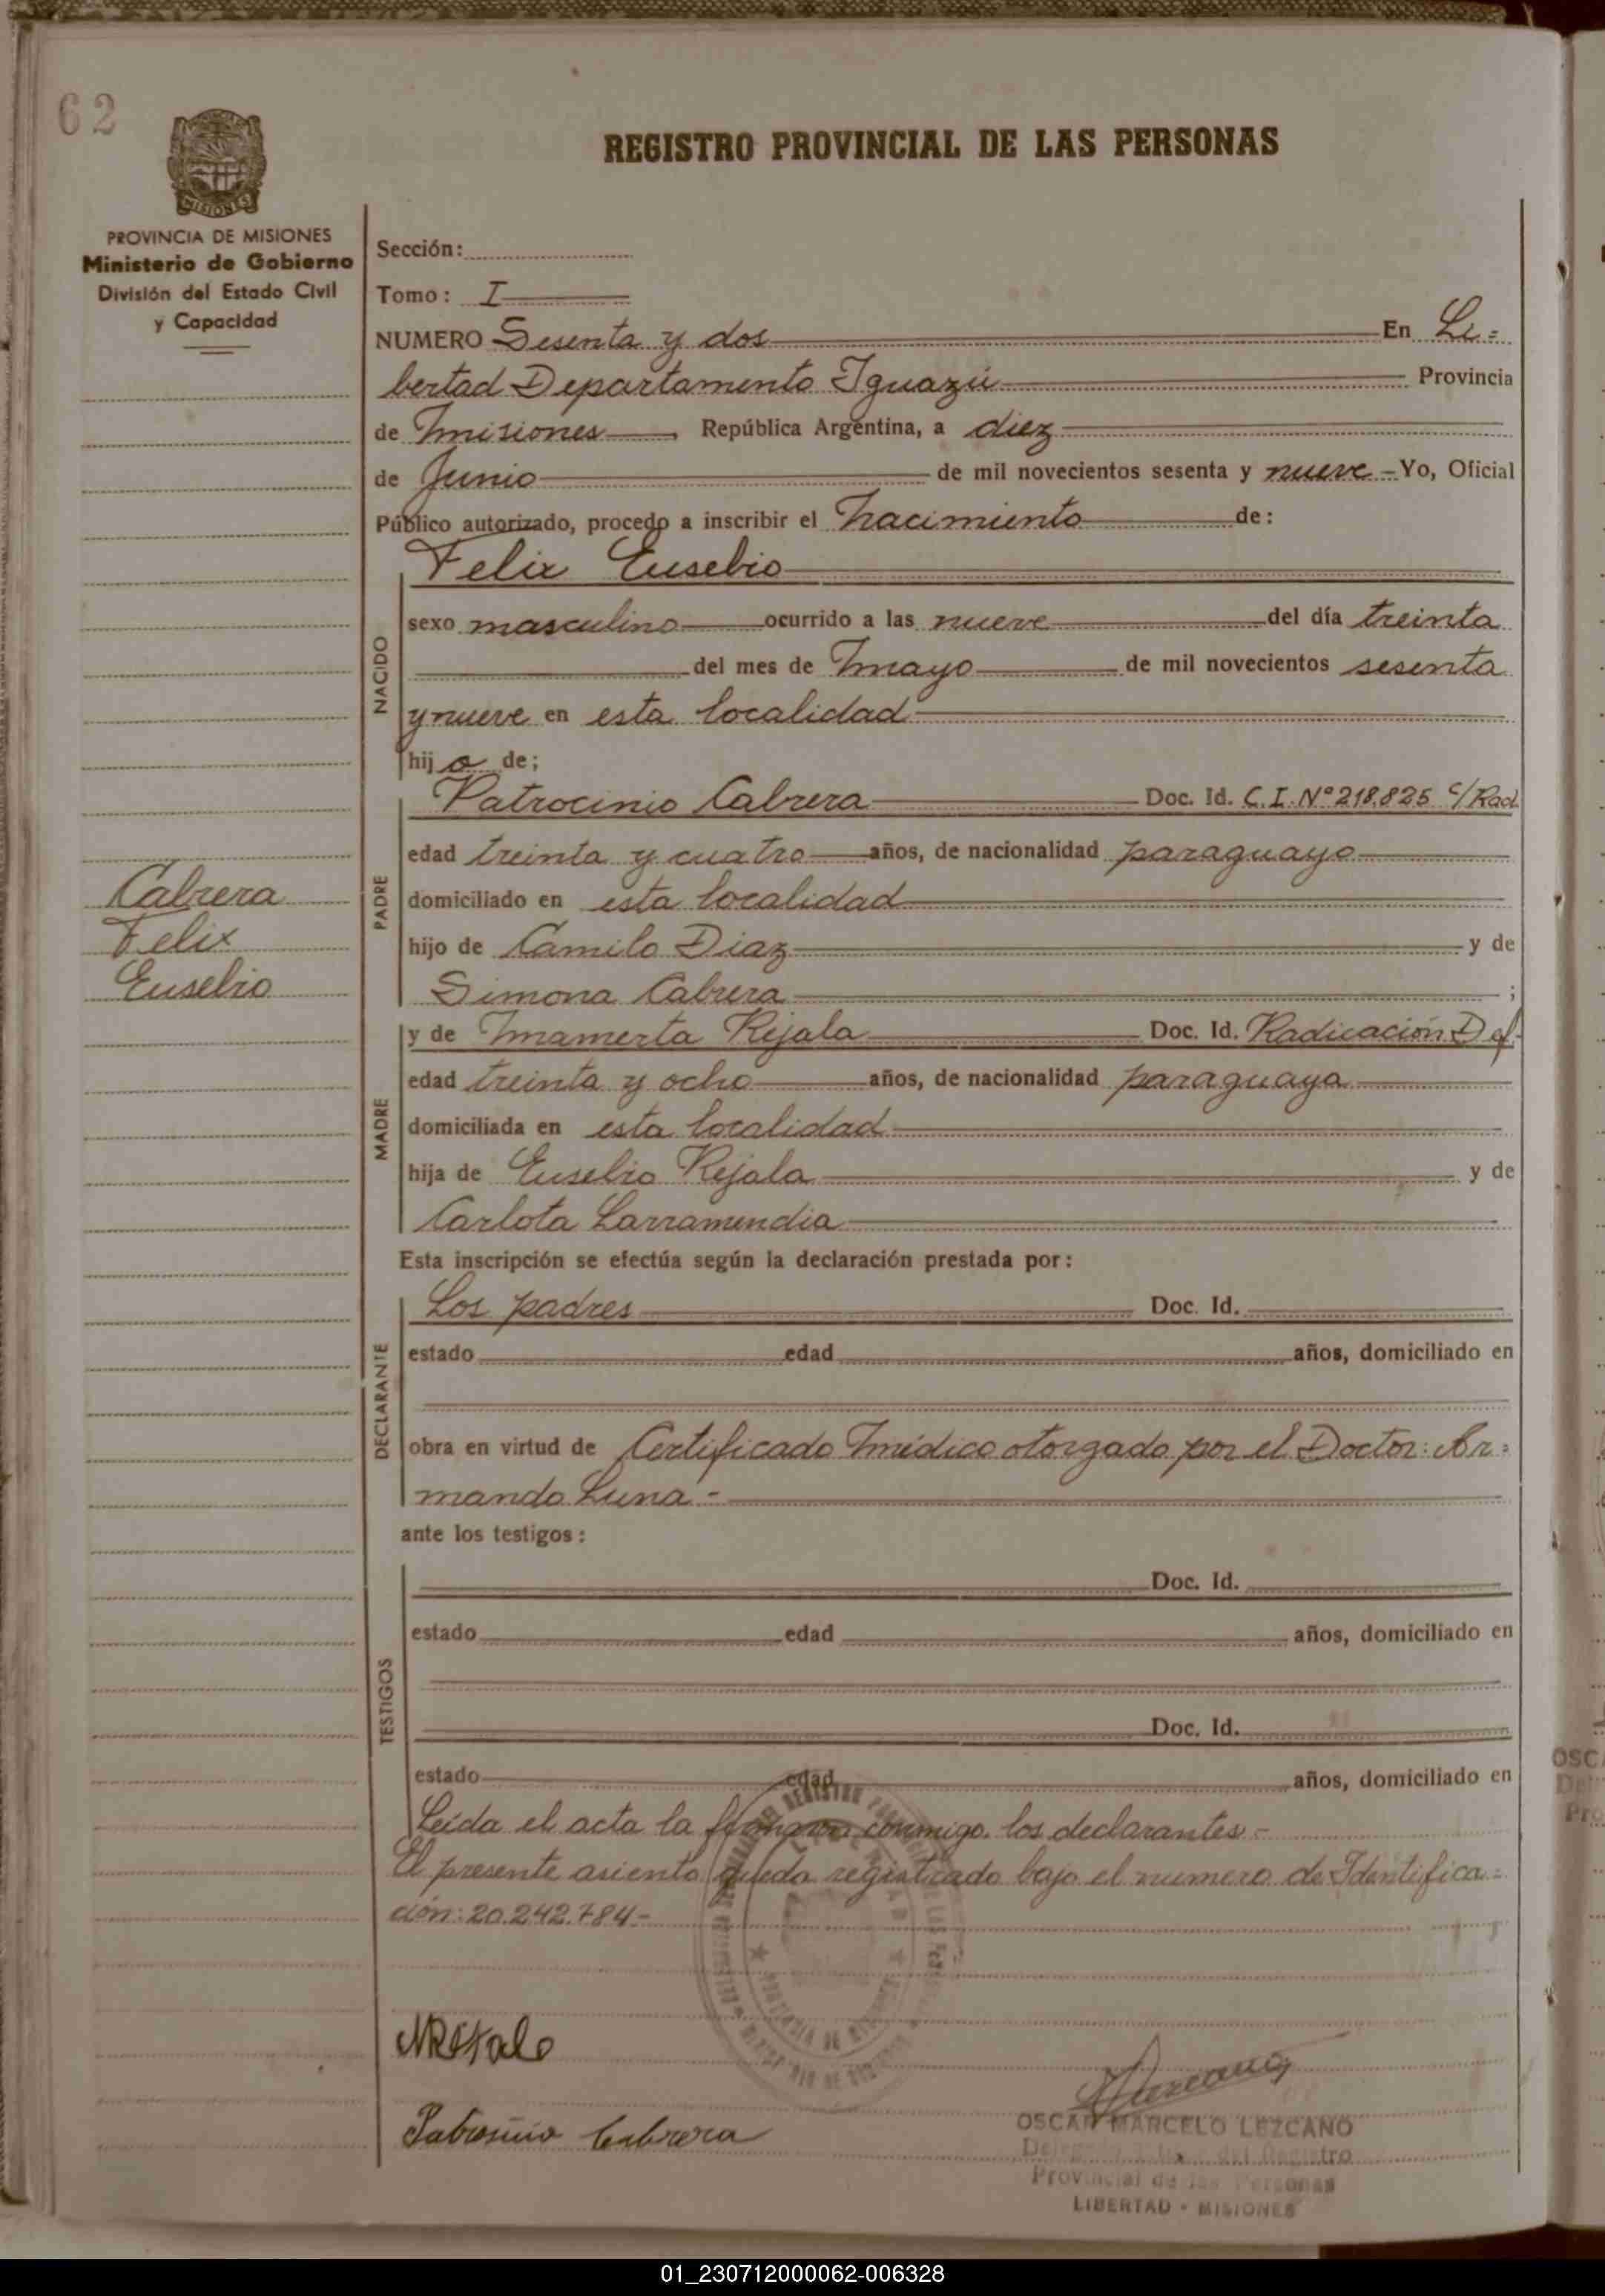 62
MISIONES
PROVINCIA DE MISIONES
Ministerio de Gobierno
División del Estado Civil
y Capacidad
REGISTRO PROVINCIAL DE LAS PERSONAS
Sección:
Tomo: I
NUMERO Sesenta y dos En Li=
bertad Departamento Iguazú Provincia
de Misiones, República Argentina, a diez
de Junio de mil novecientos sesenta y nueve - Yo, Oficial
Público autorizado, procedo a inscribir el Nacimiento de:
Felix Eusebio
NACIDO
sexo masculino ocurrido a las nueve del día treinta
del mes de Mayo de mil novecientos sesenta
y nueve en esta localidad
hijo de;
Patrocinio Cabrera Doc. Id. C.I. Nº 218.825 c/Rad
PADRE
edad treinta y cuatro años, de nacionalidad paraguayo
domiciliado en esta localidad
hijo de Camilo Diaz y de
Simona Cabrera ;
Cabrera
Felix
Eusebio
MADRE
y de Mamerta Rejala Doc. Id. Radicación Def.
edad treinta y ocho años, de nacionalidad paraguaya
domiciliada en esta localidad
hija de Eusebio Rejala y de
Carlota Larramendia
Esta inscripción se efectúa según la declaración prestada por:
DECLARANTE
Los padres Doc. Id.
estado edad años, domiciliado en
obra en virtud de Certificado Médico otorgado por el Doctor: Ar=
mando Luna.-
ante los testigos:
TESTIGOS
Doc. Id.
estado edad años, domiciliado en
Doc. Id.
estado edad años, domiciliado en
Leída el acta la firmaron conmigo los declarantes.-
El presente asiento queda registrado bajo el numero de Identifica=
ción: 20.242.784.-
Patrosinio Cabrera
OSCAR MARCELO LEZCANO
del Registro
Provincial de las Personas
LIBERTAD - MISIONES
01_230712000062-006328